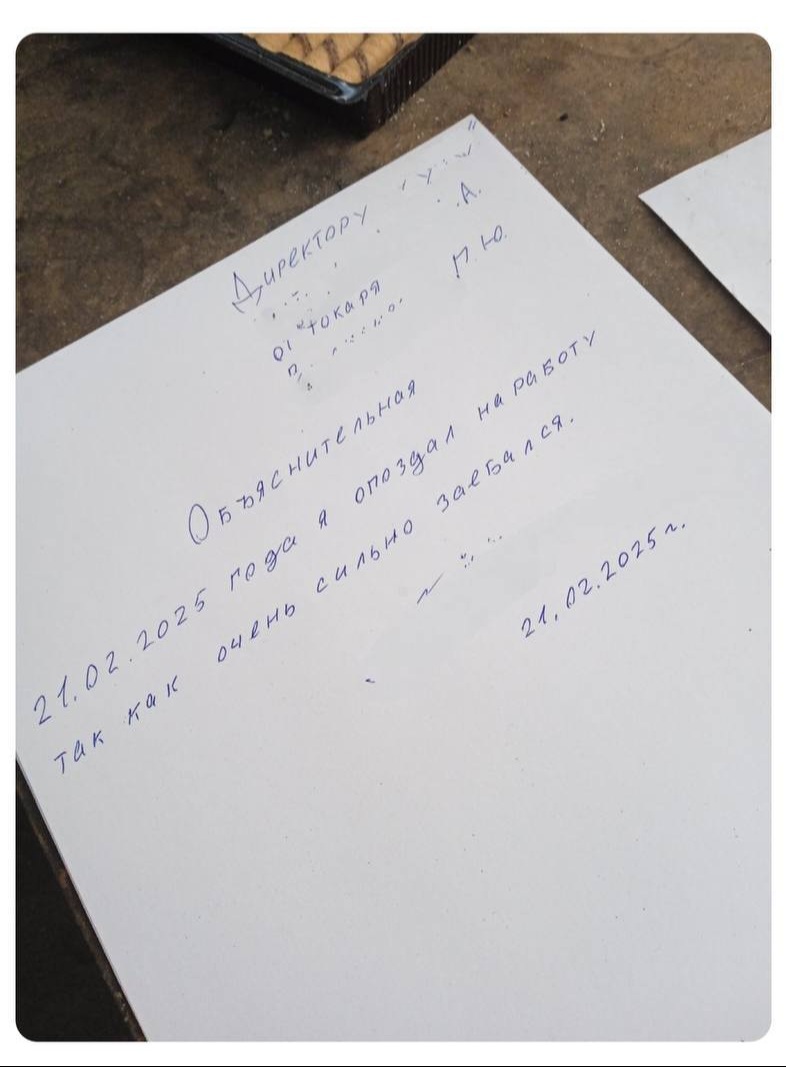 Директору
А.
от токаря
П. Ю.
Объяснительная
21.02.2025 года я опоздал на работу
так как очень сильно заебался.
21.02.2025 г.